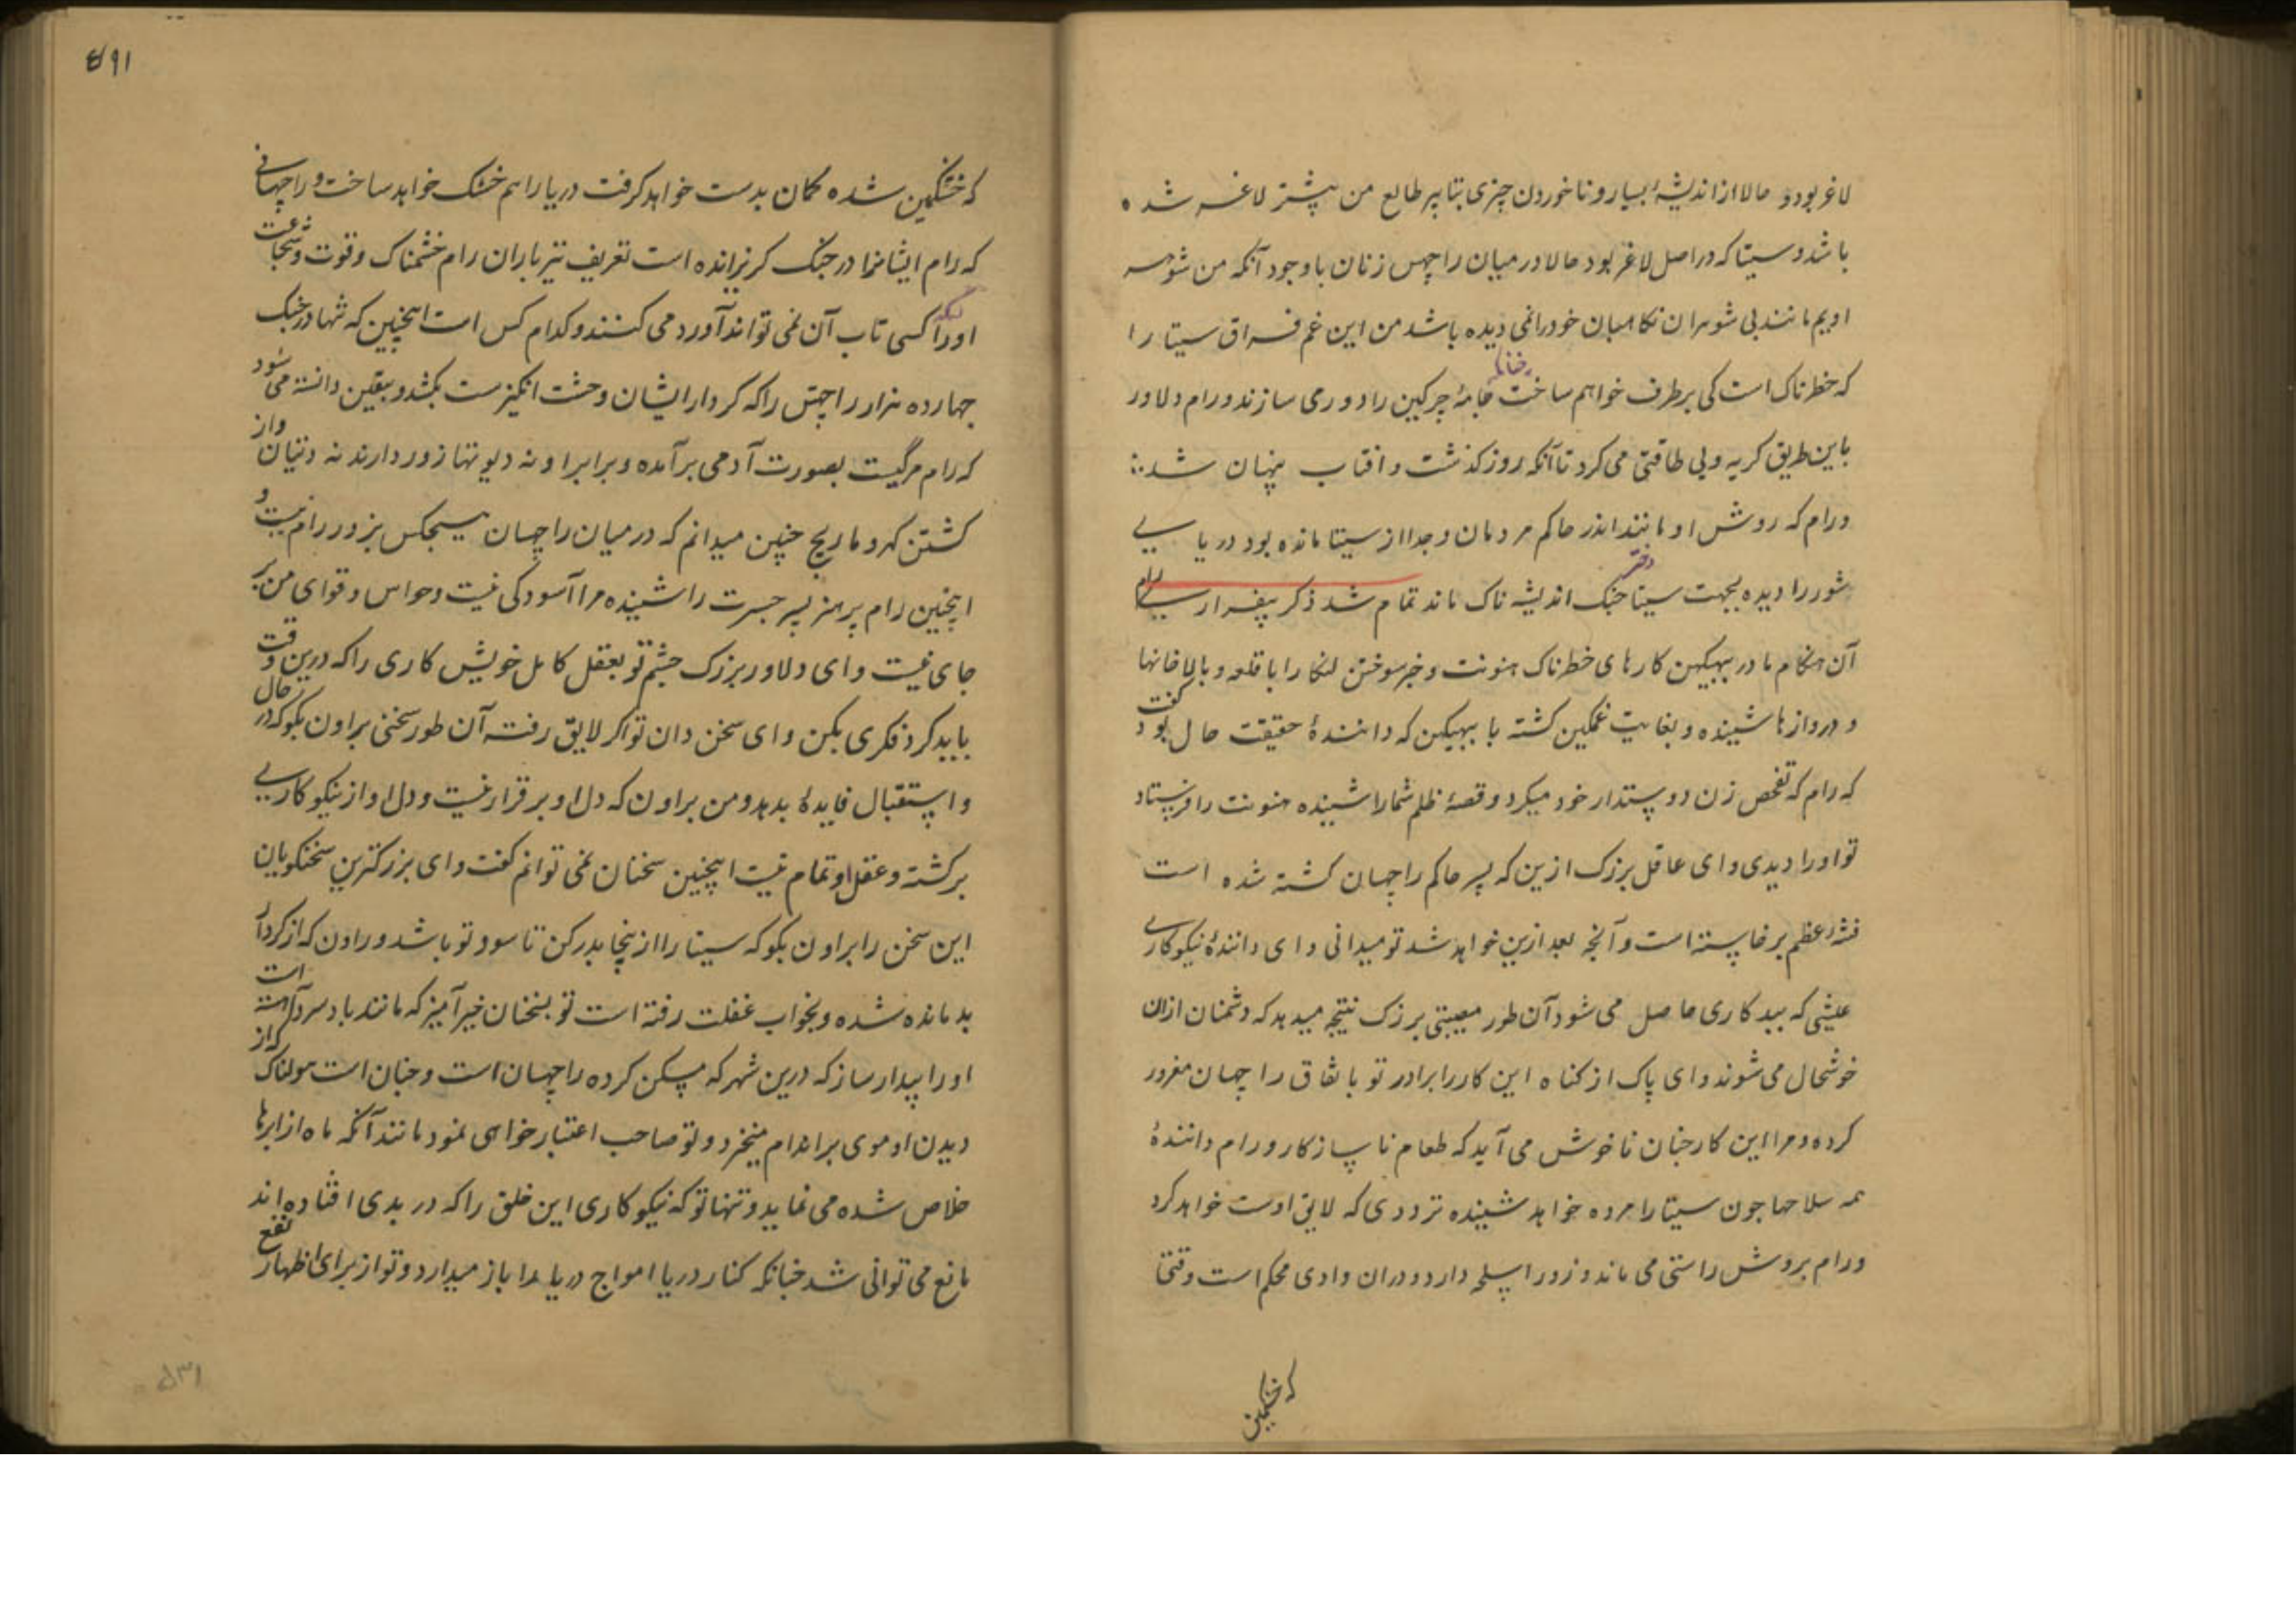 لاغر بود و حالا از اندیشهٔ بسیار و نا خوردن چیزی بتاثیر طالع من پیشتر لاغر شده
باشد و سیتا که در اصل لاغر بود حالا در میان راچهس زنان با وجود آنکه من شوهر
اویم مانند بی شوهران نکاهبان خود را نمی دیده باشد من این غم فراق سیتا را
که خطرناک است کی برطرف خواهم ساخت چنانکه جامهٔ چرکین را دور می سازند و رام دلاور
باین طریق کریه و بی طاقتی می کرد تا آنکه روز کذشت و افتاب پنهان شد
و رام که روش او مانند اندر حاکم مردمان و جدا از سیتا مانده بود دریایی
شور را دیده بجهت سیتا دختر جنک اندیشه ناک ماند تمام شد ذکر بیقراری رام
آن هنکام مادر ببهیکهن کارهای خطرناک هنونت و خبر سوختن لنکا را با قلعه و بالاخانها
و دروازها شنیده و بغایت غمکین کشته با ببهیکهن که دانندهٔ حقیقت حال بود کفت
که رام که تفحص زن دوستدار خود میکرد و قصهٔ ظلم شما را شنیده هنونت را فرستاد
تو او را دیدی و ای عاقل بزرک ازین که پسر حاکم راچهسان کشته شده است
فتنهٔ اعظم برخاسته است و آنچه بعد ازین خواهد شد تو میدانی و ای دانندهٔ نیکوکاری
عیشی که ببد کاری حاصل می شود آن طور مصیبتی بزرک نتیجه میدهد که دشمنان ازان
خوشحال می شوند و ای پاک از کناه این کار را برادر تو باتفاق راچهسان مغرور
کرده و مرا این کار چنان ناخوش می آید که طعام ناسازکار و رام دانندهٔ
همه سلاحها چون سیتا را مرده خواهد شنیده ترددی که لایق اوست خواهد کرد
و رام بروش راستی می ماند و زور اسلحه دارد و دران وادی محکم است وقتی
که خشمکین
۶۹۱
که خشمکین شده کمان بدست خواهد کرفت دریا را هم خشک خواهد ساخت و راچهسانی
که رام ایشانرا در جنک کریزانده است تعریف تیرباران رام خشمناک و قوت و شجاعت
او را که کسی تاب آن نمی تواند آورد می کنند و کدام کس است اینچنین که تنها در جنک
چهارده هزار راچهس را که کردار ایشان وحشت انکیزست بکشد و بیقین دانسته می شود
که رام مرکیست بصورت آدمی برآمده و برابر او نه دیوتها زور دارند نه دتیان و از
کشتن کهر و ماریچ چنین میدانم که در میان راچهسان هیچکس بزور رام نیست و
اینچنین رام پر هنر پسر جسرت را شنیده مرا آسودکی نیست و حواس و قوای من بر
جای نیست و ای دلاور بزرک چشم تو بعقل کامل خویش کاری را که درین وقت
باید کرد فکری بکن و ای سخن دان تو اکر لایق رفته آن طور سخنی براون بکو که در حال
و استقبال فایدهٔ بدهد و من براون که دل او بر قرار نیست و دل او از نیکوکاری
برکشته و عقل او تمام نیست اینچنین سخنان نمی توانم کفت و ای بزرکترین سخنکویان
این سخن را براون بکو که سیتا را از ینجا بدر کن تا سود تو باشد و راون که از کردار
بد مانده شده و بخواب غفلت رفته است تو بسخنان خیر آمیز که مانند باد سرد آهسته است
او را بیدار ساز که درین شهر که مسکن کرده راچهسان است و چنان است هولناک که از
دیدن او موی بر اندام میخیزد و تو صاحب اعتبار خواهی نمود مانند آنکه ماه از ابرها
خلاص شده می نماید و تنها تو که نیکوکاری این خلق را که در بدی افتاده اند
مانع می توانی شد چنانکه کنار دریا امواج دریا را باز میدارد و تو از برای اظهار نفع
۵۳۱